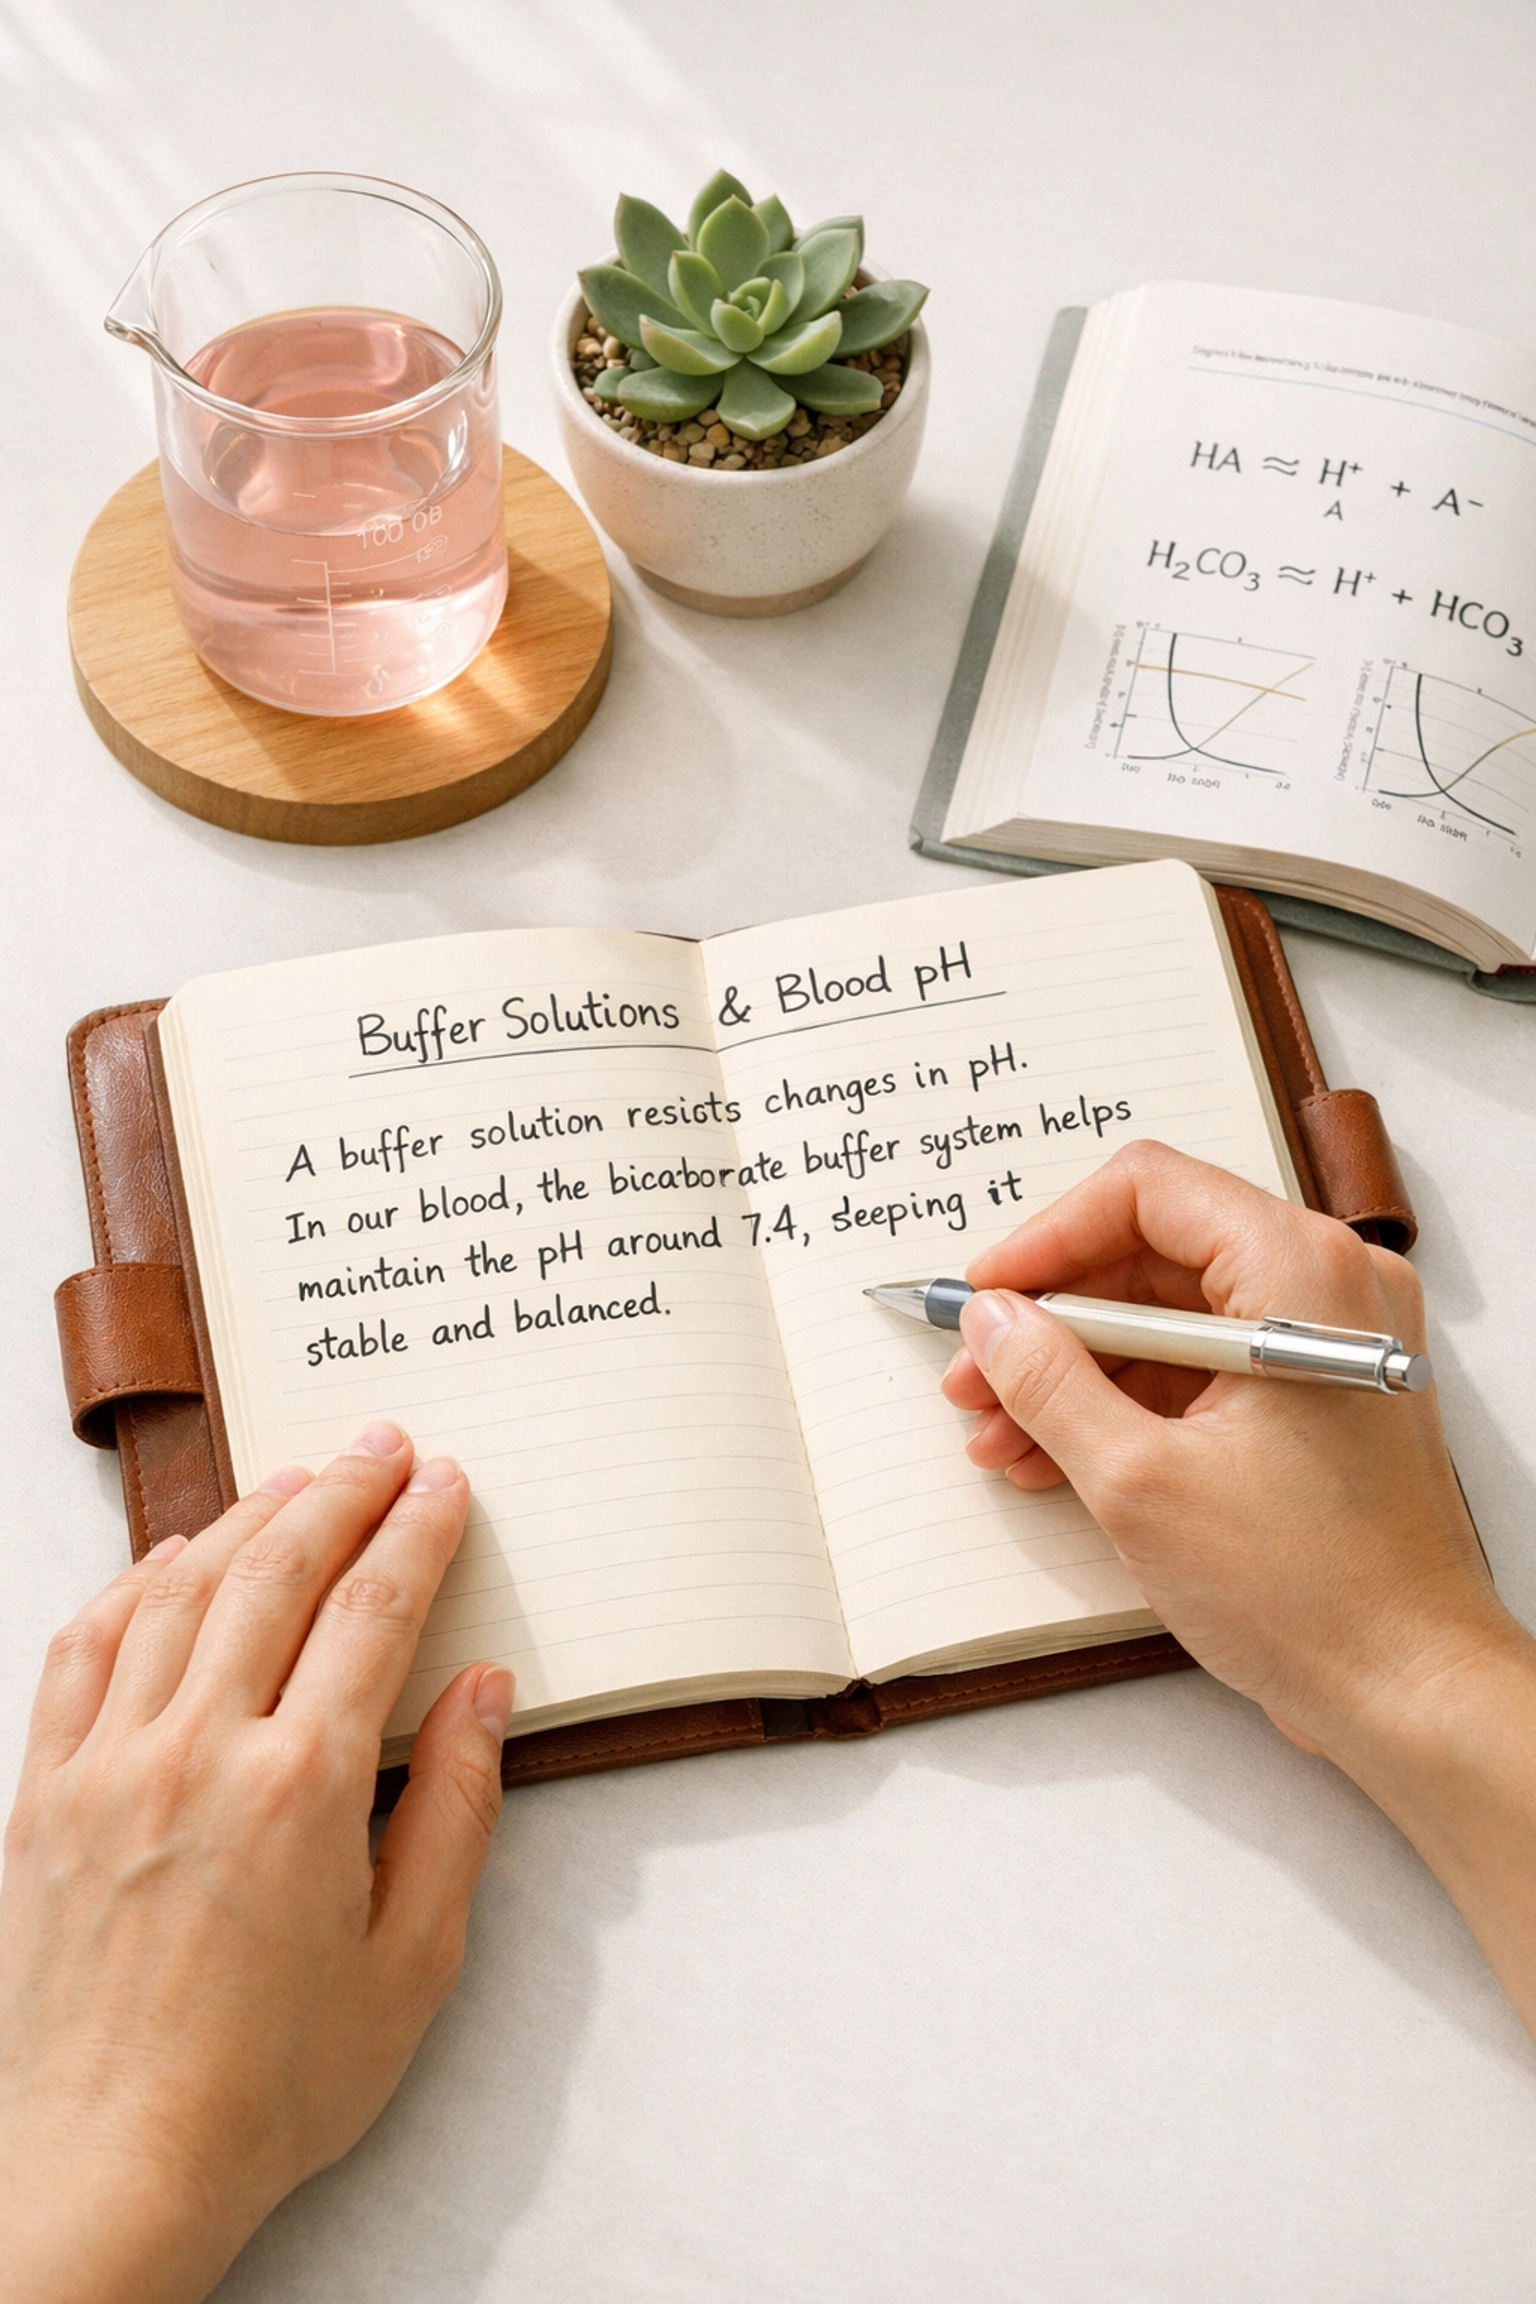 HA ≈ H⁺ + A⁻
A
H₂CO₃ ≈ H⁺ + HCO₃
Buffer Solutions & Blood pH
A buffer solution resicts changes in pH.
In our blood, the bicaborate buffer system helps
maintain the pH around 7.4, seeping it
stable and balanced.